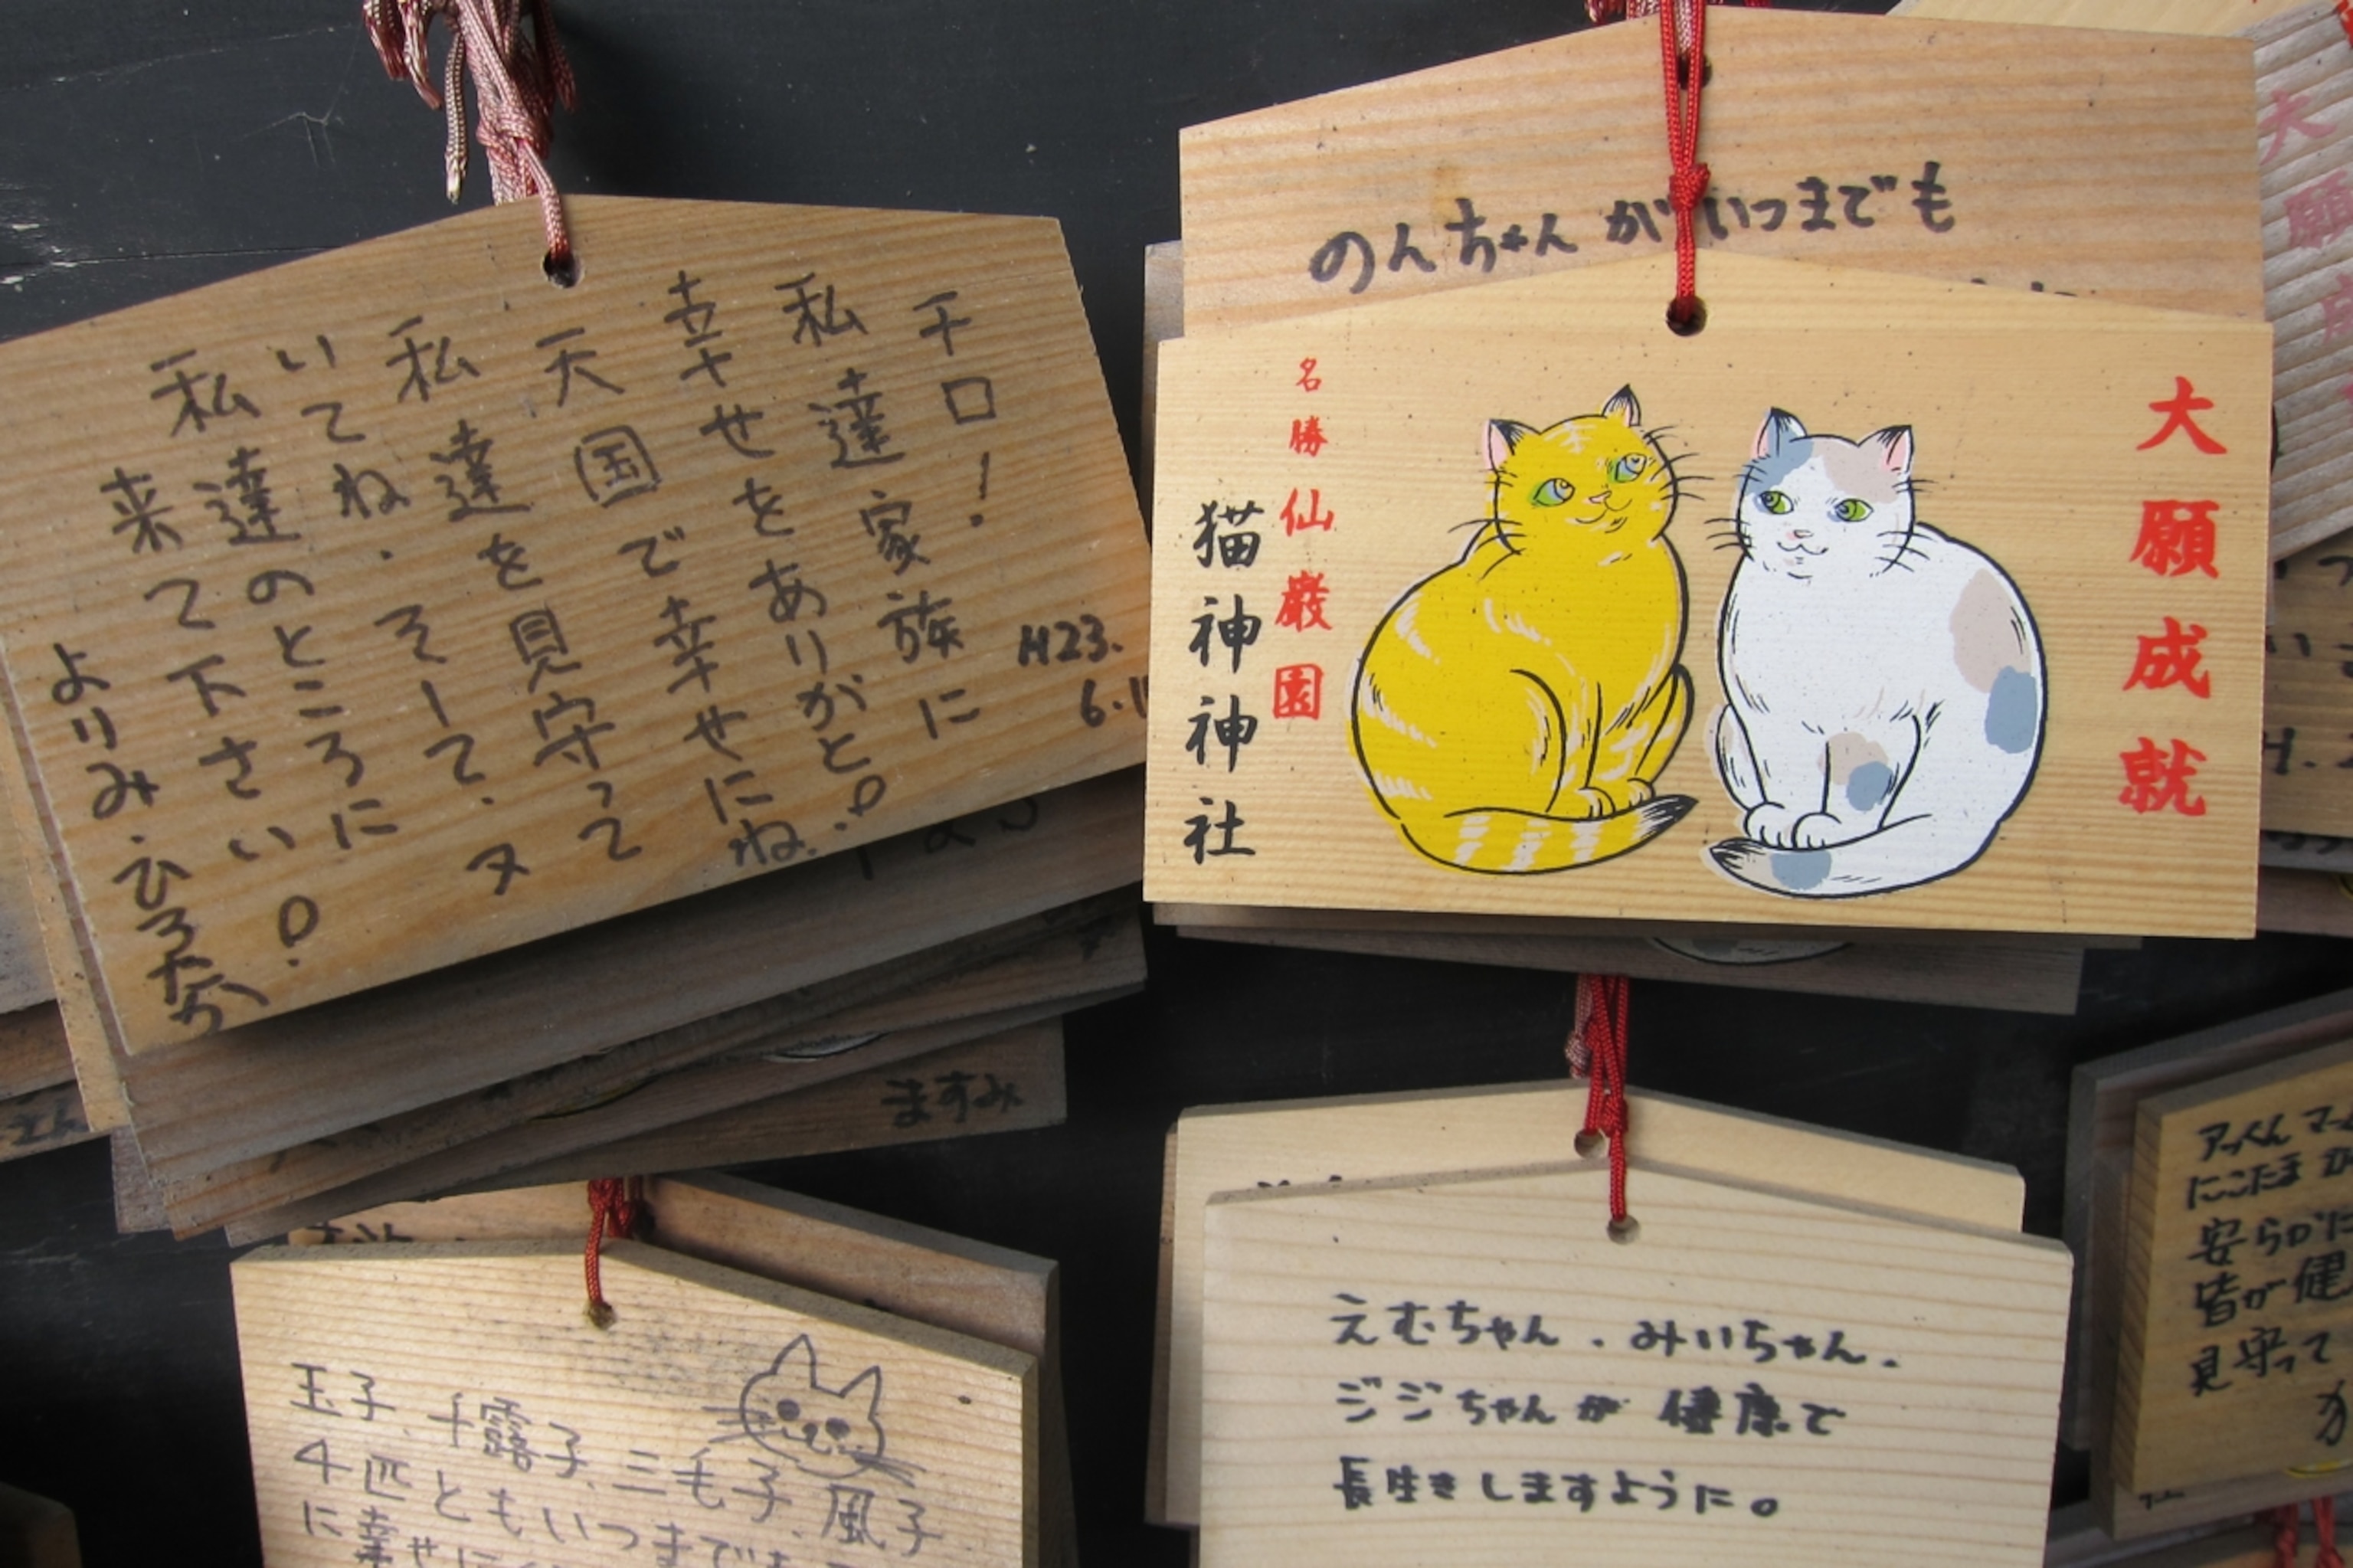 チロ!
私達家族に
幸せをありがと!
天国で幸せにね.
私達を見守って
いてね.そして、又
私達のところに
来て下さい!
よりみ・ひろたか
H23.
6.1
のんちゃんがいつまでも
大願成就
名勝仙巌園
猫神神社
大願成
ますみ
玉子、千露子、三毛子、風子
4匹ともいつまでも
に幸せに
えむちゃん.みいちゃん.
ジジちゃんが健康で
長生きしますように。
アッくんマー
にこたまが
安らかに
皆が健
見守って